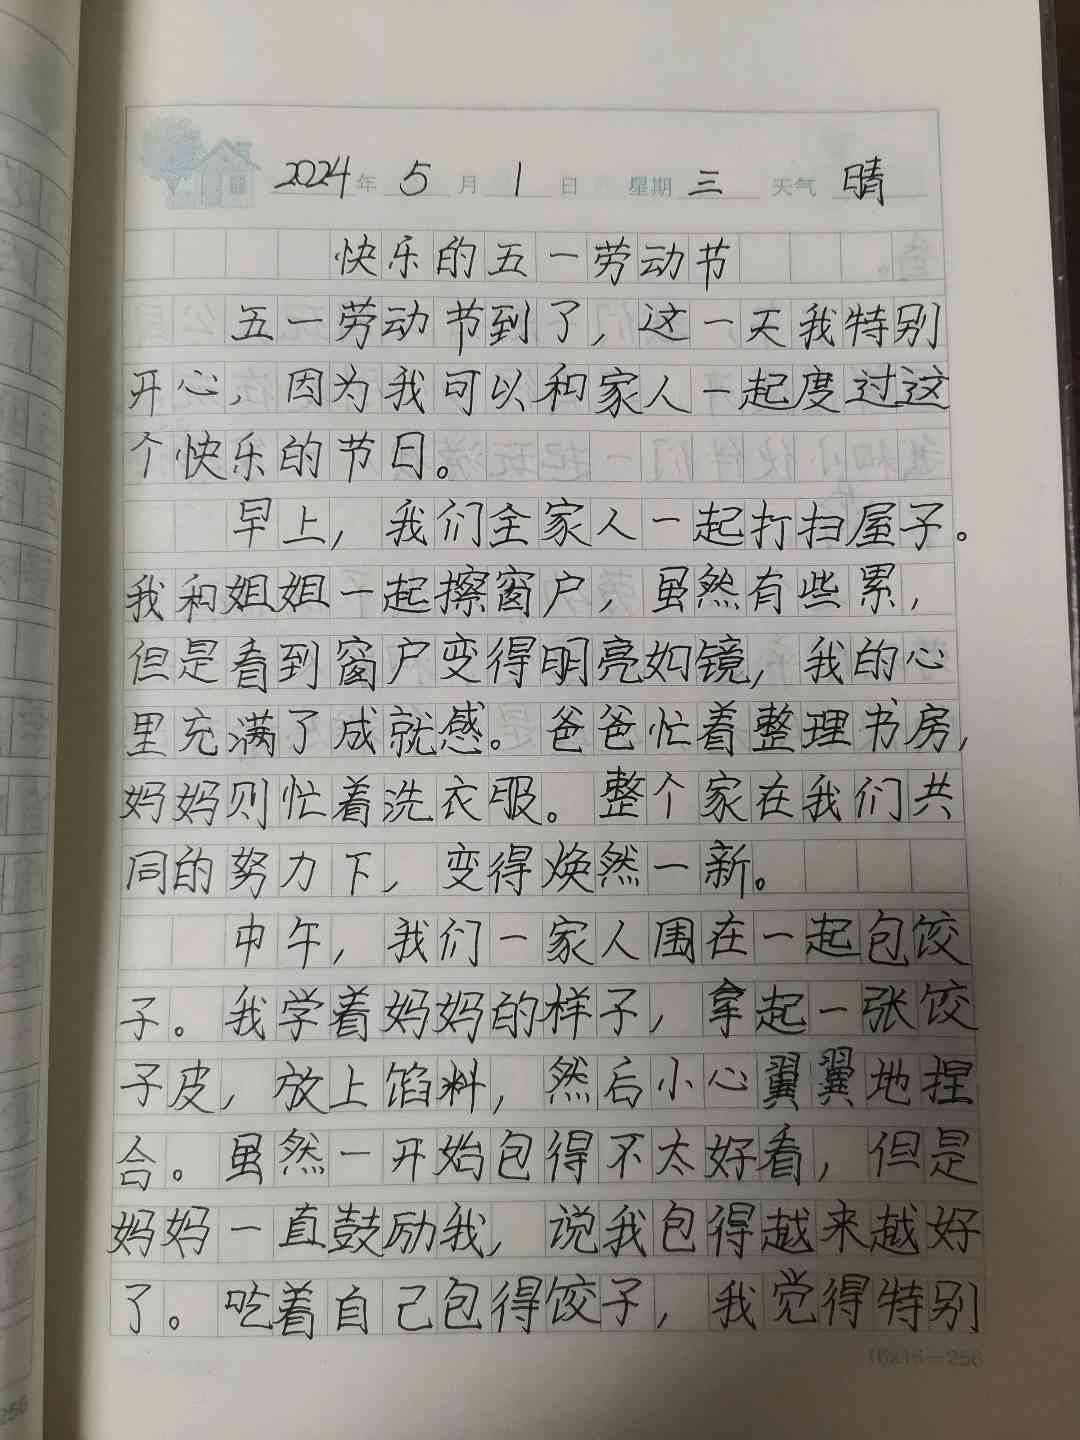 2024年 5 月 1 日 星期 三 天气 晴
快乐的五一劳动节
五一劳动节到了，这一天我特别
开心，因为我可以和家人一起度过这
个快乐的节日。
早上，我们全家人一起打扫屋子。
我和姐姐一起擦窗户，虽然有些累，
但是看到窗户变得明亮如镜，我的心
里充满了成就感。爸爸忙着整理书房，
妈妈则忙着洗衣服。整个家在我们共
同的努力下，变得焕然一新。
中午，我们一家人围在一起包饺
子。我学着妈妈的样子，拿起一张饺
子皮，放上馅料，然后小心翼翼地捏
合。虽然一开始包得不太好看，但是
妈妈一直鼓励我，说我包得越来越好
了。吃着自己包得饺子，我觉得特别
16x16=256
256